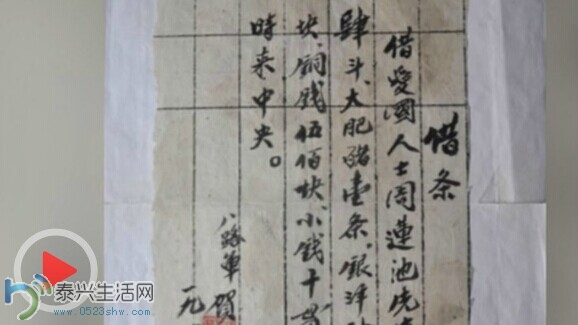 借条
借愛國人士周蓮池先
肆斗、大肥豬壹条、銀洋
块、铜钱伍佰块、小钱十
時来中央。
八路軍 賀
一九
泰兴生活网
www.0523shw.com